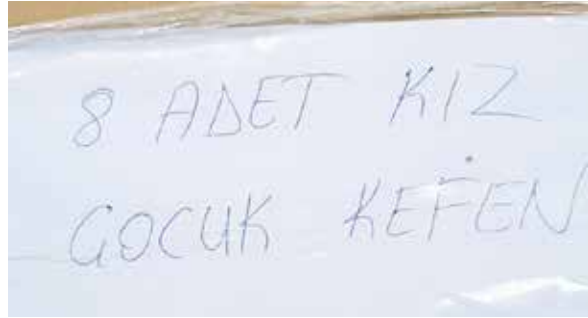 8 ADET KIZ
ÇOCUK KEFEN